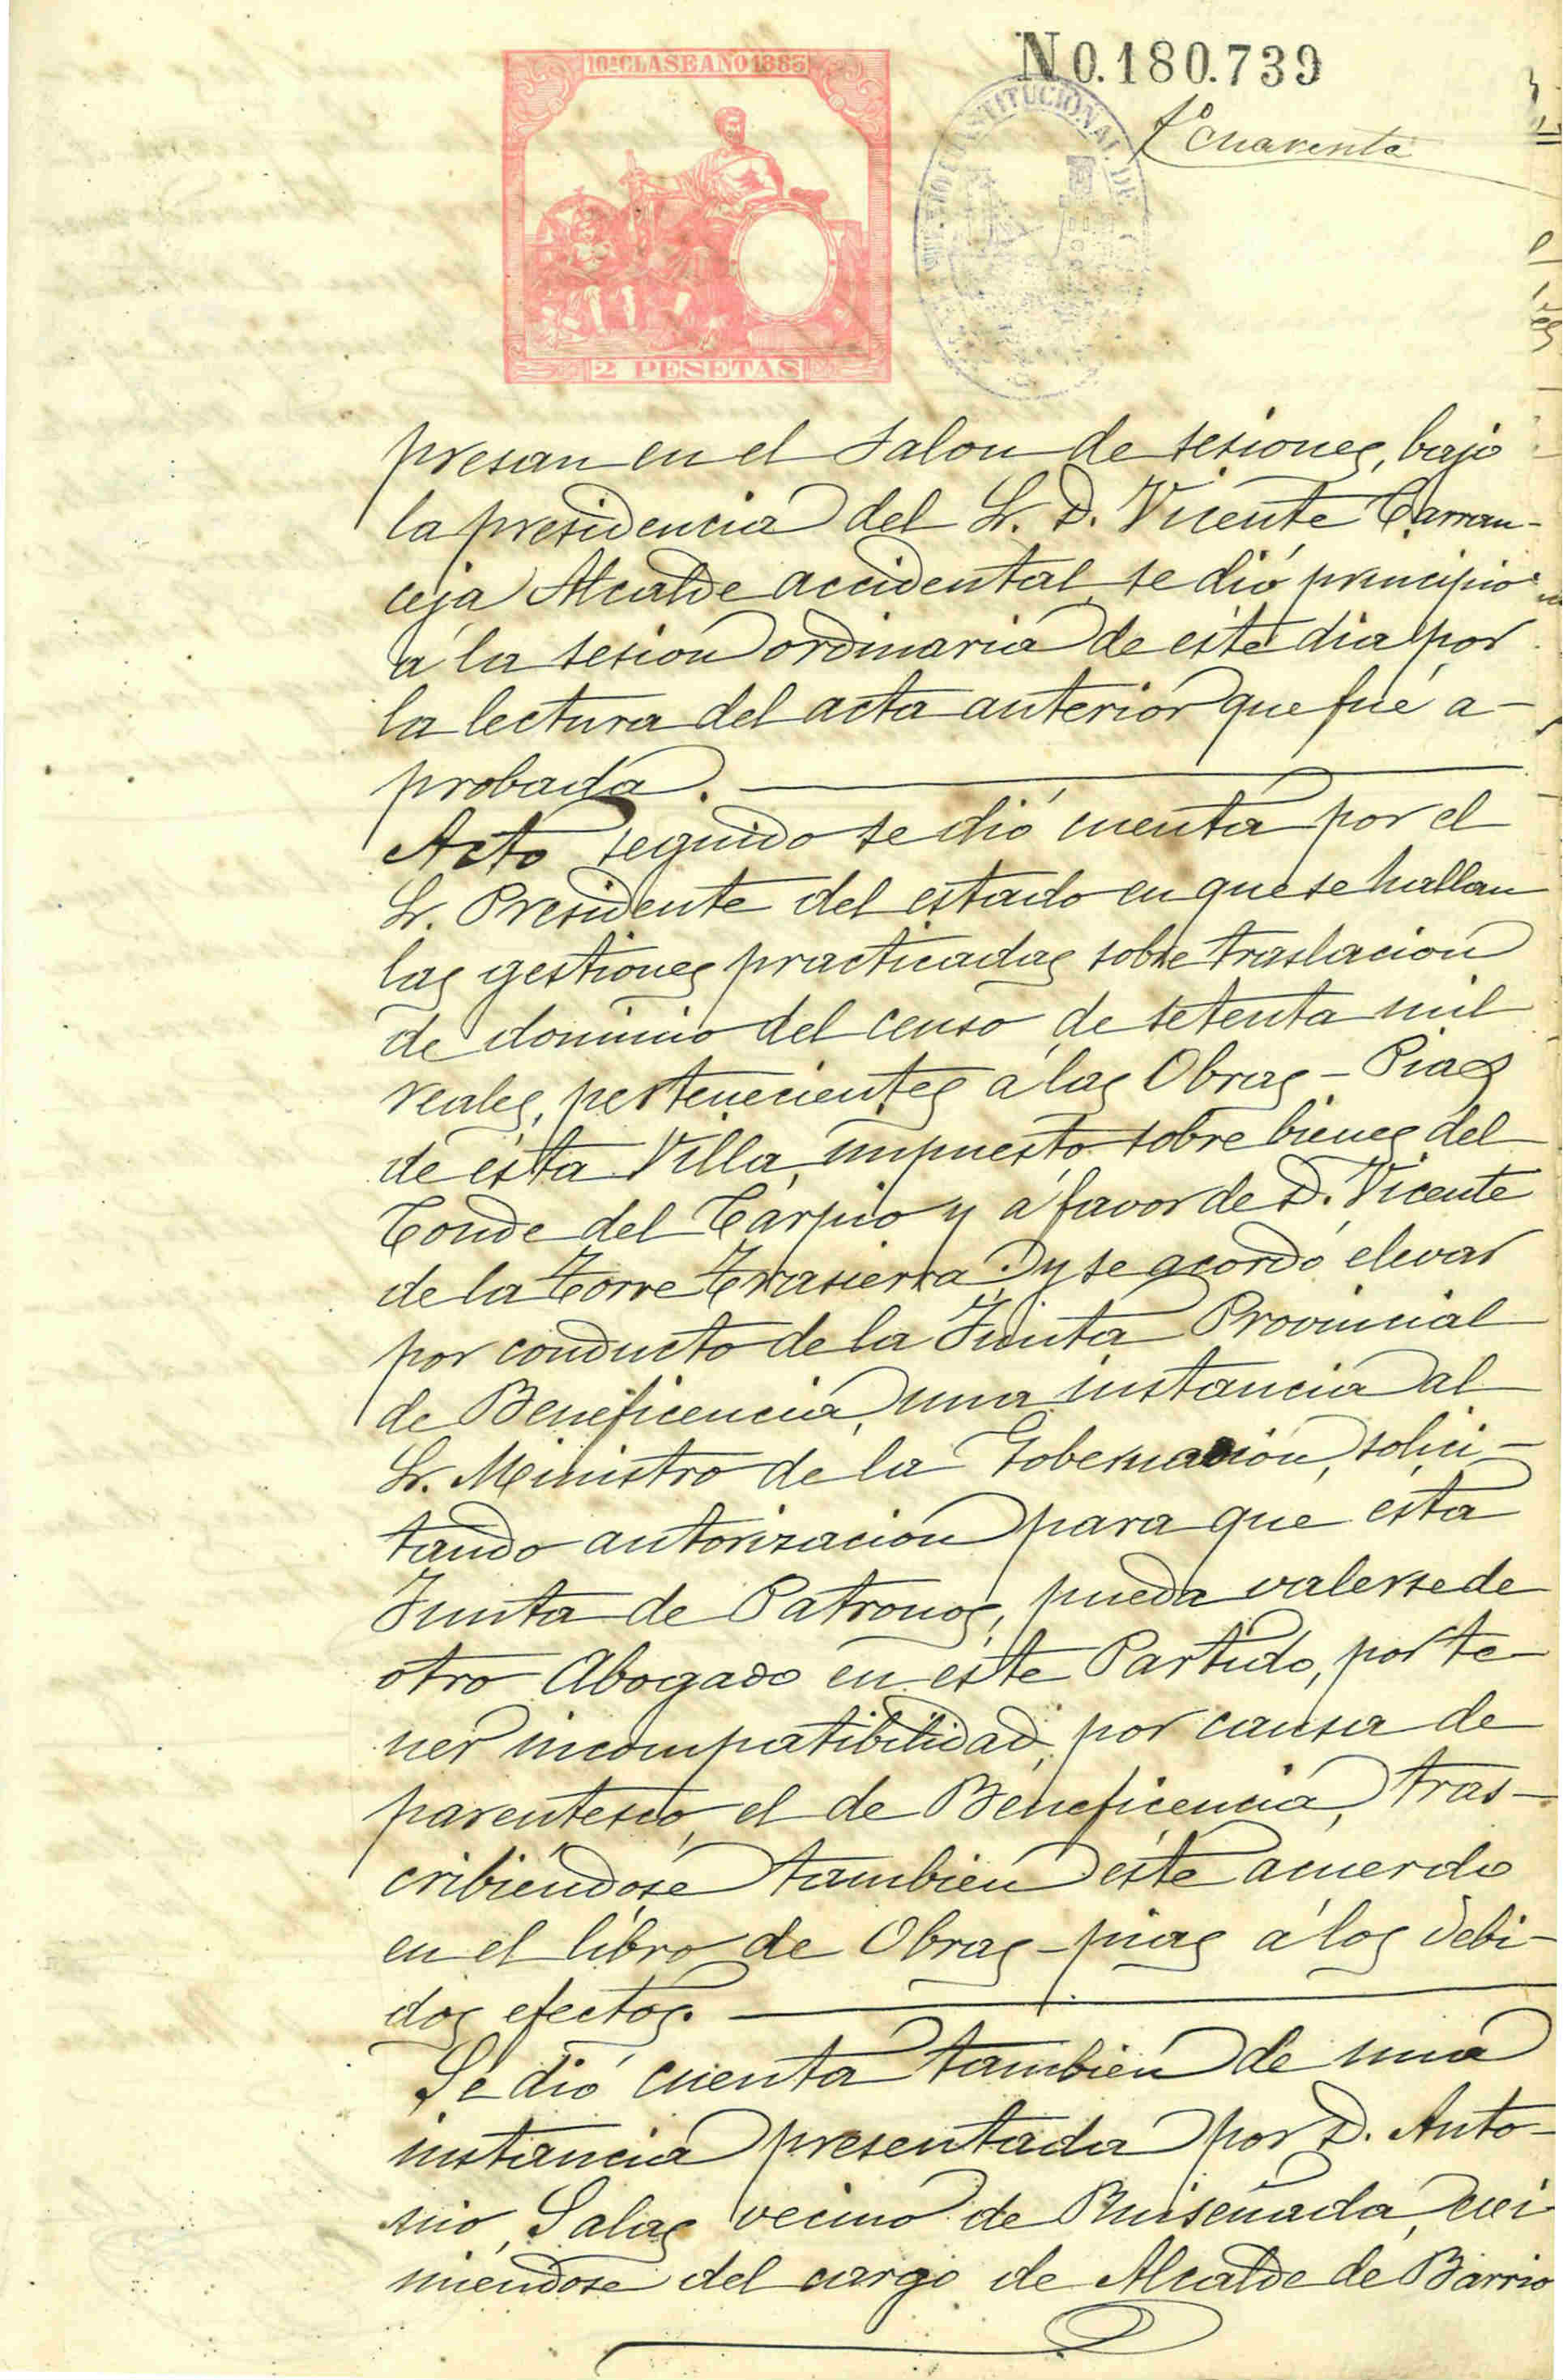 10ª CLASE AÑO 1885
N0.180.739
Cuarenta
CONSTITUCIONAL DE
2 PESETAS
presan en el Salon de sesiones, bajo
la presidencia del Sr. D. Vicente Carran-
ceja Alcalde accidental, se dió principio
á la sesion ordinaria de éste dia por
la lectura del acta anterior que fué a-
probada.
Acto seguido se dió cuenta por el
Sr. Presidente del estado en que se hallan
las gestiones practicadas sobre traslacion
de dominio del censo de setenta mil
reales, pertenecientes á las Obras-Pias
de ésta Villa, impuesto sobre bienes del
Conde del Carpio y á favor de D. Vicente
de la Torre Trasierra; y se acordó elevar
por conducto de la Junta Provincial
de Beneficencia, una instancia al
Sr. Ministro de la Gobernacion, solici-
tando autorizacion para que ésta
Junta de Patronos, pueda valerse de
otro Abogado en éste Partido, por te-
ner incompatibilidad, por causa de
parentesco, el de Beneficencia, tras-
cribiéndose tambien éste acuerdo
en el libro de Obras-pias á los debi-
dos efectos.
Se dió cuenta tambien de una
instancia presentada por D. Anto-
nio, Salas vecino de Ruiseñada, exi-
miéndose del cargo de Alcalde de Barrio